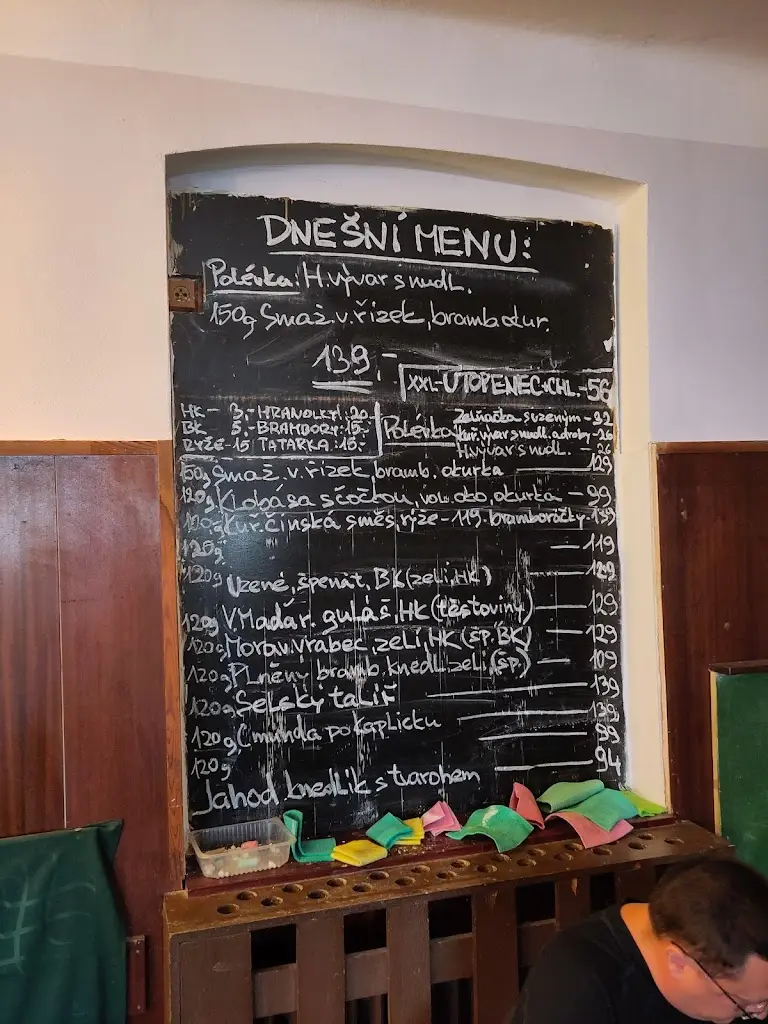 DNEŠNÍ MENU:
Polévka: H.vývar s nudl.
150g Smaž.v.řízek, bramb. okur.
139,-
XXL-UTOPENEC+CHL.-56
HK- 3.- HRANOLKY: 20.-
BK 5.- BRAMBORY: 15.-
RÝŽE-15 TATARKA: 15.-
Polévka
Zelňačka s uzeným - 32
Kuř.vývar s nudl. a droby - 26
H.vývar s nudl. - 26
150g Smaž. v. řízek, bramb. okurka 129
120g Klobása s čočkou, vol. oko, okurka - 99
120g Kuř. čínská směs, rýže - 119. bramboráčky - 139
120g 119
120g Uzené, špenát, BK (zelí, HK) 129
120g V.Maďar. guláš, HK (těstoviny) 129
120g Morav. vrabec, zelí, HK (šp. BK) 129
120g Plněný bramb. knedl. zelí (šp.) 109
120g Selský talíř 139
120g Čmunda po kaplicku 139
120g 99
Jahod. knedlík s tvarohem 94